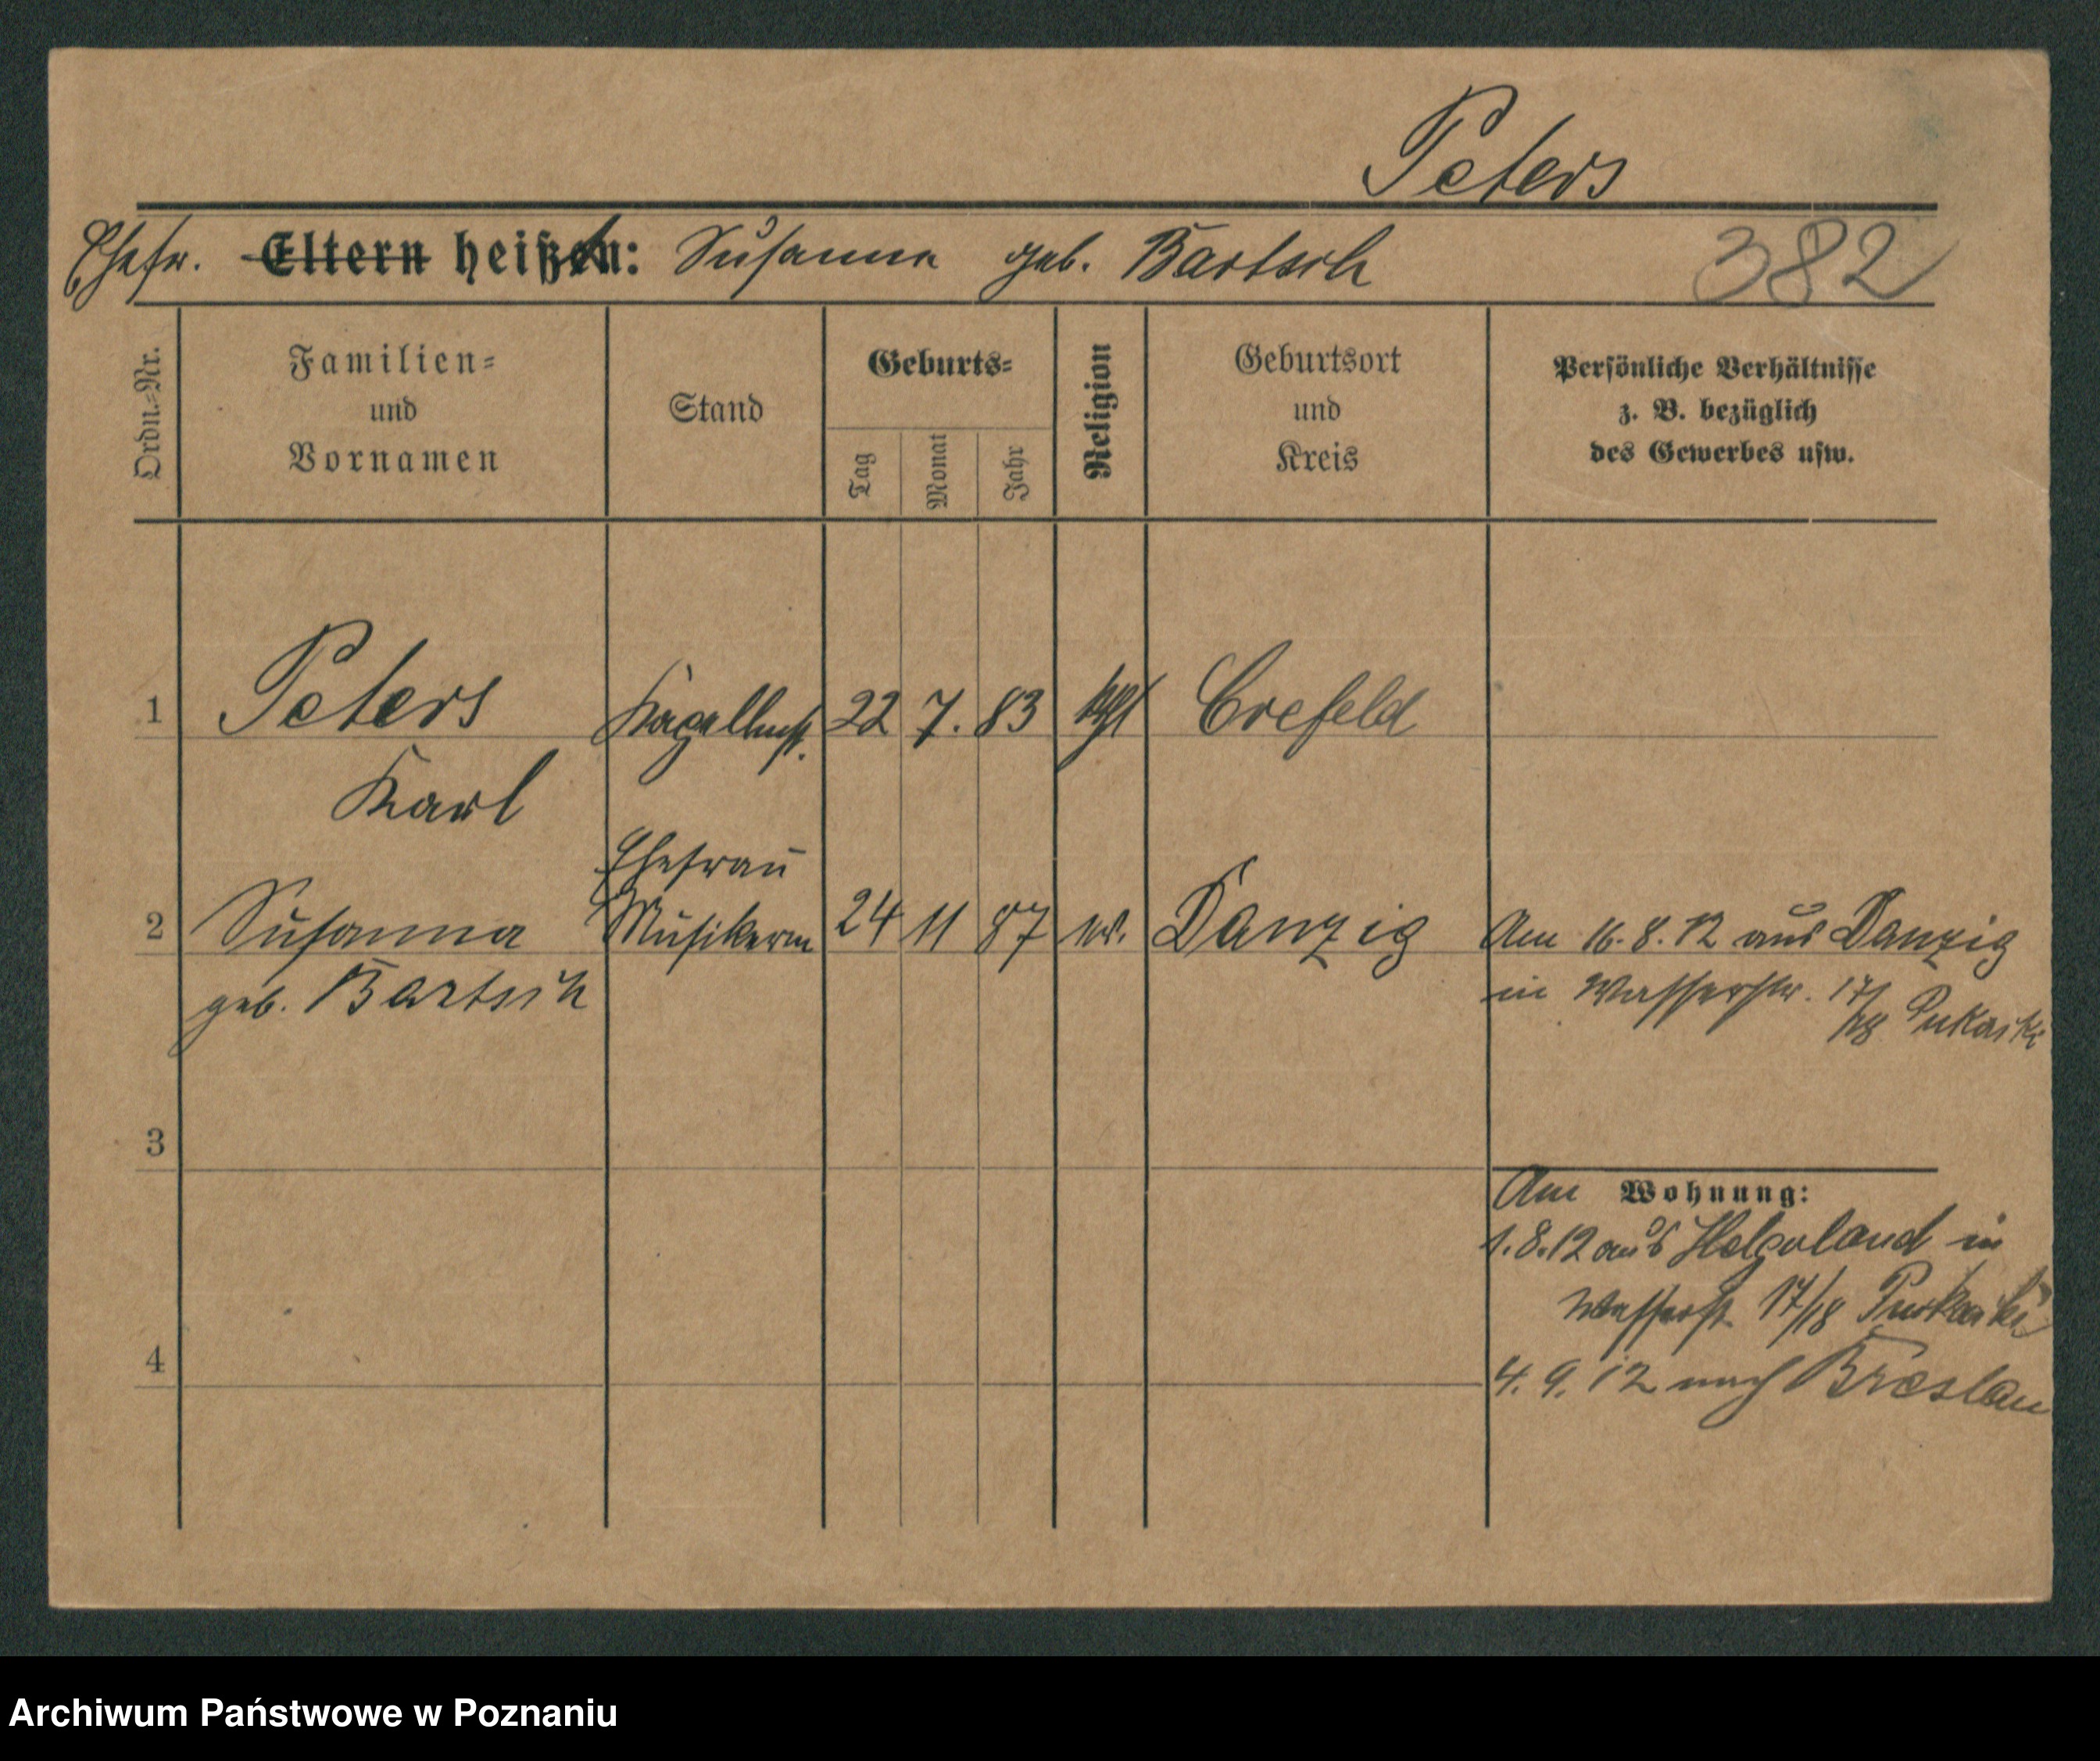 Peters
Ehefr. Eltern heißen: Susanna geb. Bartsch 382
Ordn.-Nr.
Familien-
und
Vornamen
Stand
Geburts-
Tag
Monat
Jahr
Religion
Geburtsort
und
Kreis
Persönliche Verhältnisse
z. B. bezüglich
des Gewerbes usw.
1 Peters Kapellmst. 22 7. 83 kath Crefeld
Karl
Ehefrau
2 Susanna Musikerin 24 11 87 ev. Danzig Am 16.8.12 aus Danzig
geb. Bartsch in Wasserstr. 17/18
3
Am Wohnung:
1.8.12 aus Helgoland in
Wasserst. 17/18
4 4.9.12 nach Breslau
Archiwum Państwowe w Poznaniu